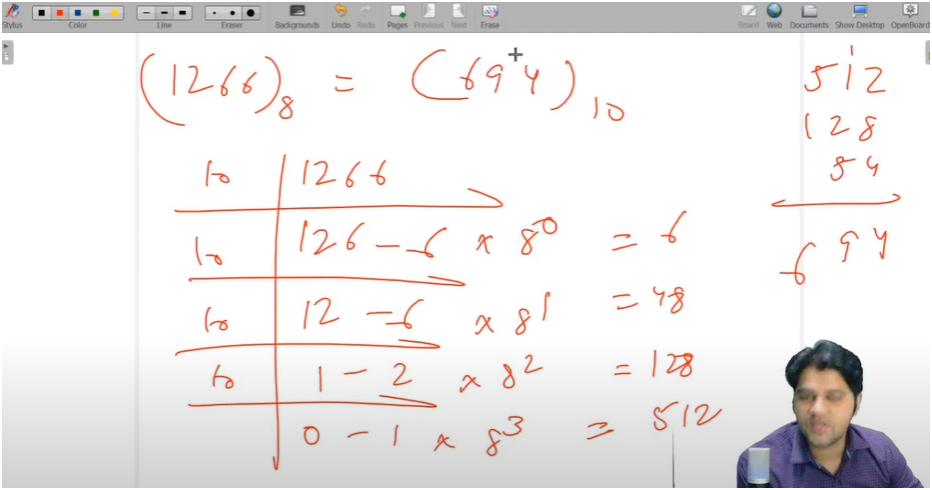 Stylus Color Line Eraser Backgrounds Undo Redo Pages Previous Next Erase Board Web Documents Show Desktop OpenBoard
(1266)8 = (694)10
10 | 1266
10 | 126 - 6 x 8^0 = 6
10 | 12 - 6 x 8^1 = 48
10 | 1 - 2 x 8^2 = 128
0 - 1 x 8^3 = 512
1
512
128
54
694